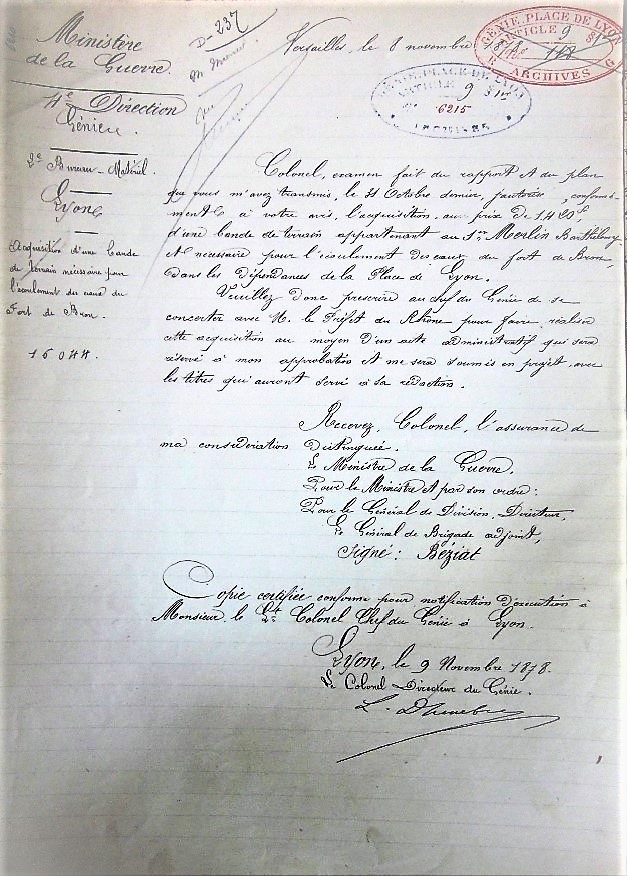 Ministère
de la Guerre.
4e Direction
Génie.
2e Bureau - Matériel.
Lyon
Acquisition d'une bande
de terrain nécessaire pour
l'écoulement des eaux du
Fort de Bron.
15044.
Don 237
Versailles, le 8 novembre
GÉNIE. PLACE DE LYON
ARTICLE 9 §
ARCHIVES
GÉNIE-PLACE DE LYON
ARTICLE 9 §
6215
Colonel, examen fait du rapport et du plan
que vous m'avez transmis, le 31 Octobre dernier, j'autorise, conformé-
ment à votre avis, l'acquisition, au prix de
d'une bande de terrain appartenant au Sr. Merlin Barthélemy
et nécessaire pour l'écoulement des eaux du fort de Bron,
dans les dépendances de la Place de Lyon.
Veuillez donc prescrire au chef du Génie de se
concerter avec M. le Préfet du Rhône pour faire réaliser
cette acquisition au moyen d'un acte administratif qui sera
réservé à mon approbation et me sera soumis en projet, avec
les titres qui auront servi à sa rédaction.
Recevez, Colonel, l'assurance de
ma considération distinguée.
Le Ministre de la Guerre.
Pour le Ministre et par son ordre:
Pour le Général de Division, Directeur,
Le Général de Brigade adjoint,
Signé: Béziat
Copie certifiée conforme pour notification d'exécution à
Monsieur le Lt Colonel Chef du Génie à Lyon.
Lyon, le 9 Novembre 1878.
Le Colonel Directeur du Génie.